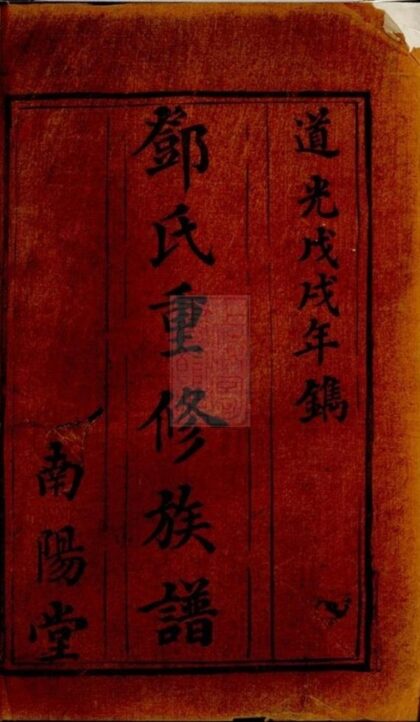 道光戊戌年鐫
鄧氏重修族譜
南陽堂